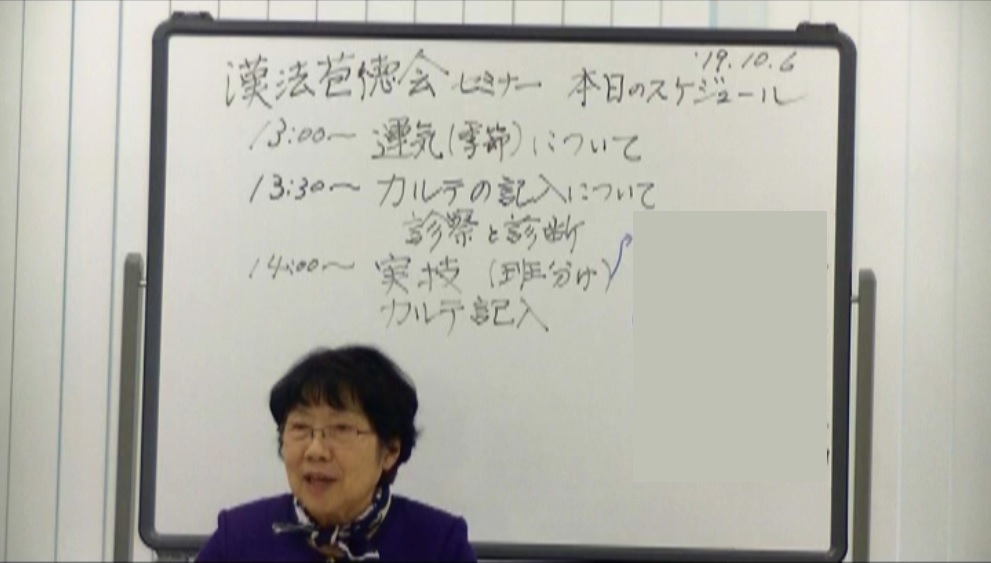 '19.10.6
漢法苞徳会セミナー 本日のスケジュール
13:00〜 運気(季節)について
13:30〜 カルテの記入について
診察と診断
14:00〜 実技 (班分け)
カルテ記入